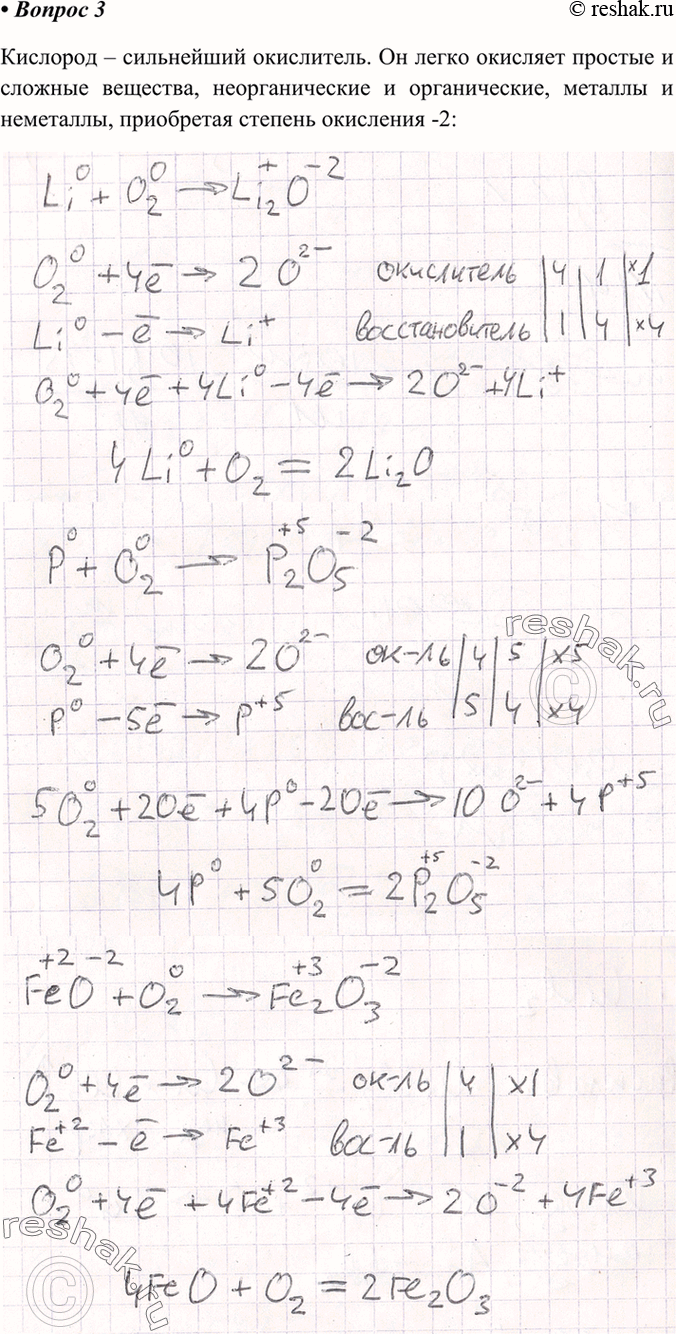 • Вопрос 3
© reshak.ru
Кислород – сильнейший окислитель. Он легко окисляет простые и
сложные вещества, неорганические и органические, металлы и
неметаллы, приобретая степень окисления -2:
Li⁰ + O₂⁰ → Li₂⁺O⁻²
O₂⁰ + 4e̅ → 2O²⁻ окислитель | 4 | 1 | ×1
Li⁰ − e̅ → Li⁺ восстановитель | 1 | 4 | ×4
O₂⁰ + 4e̅ + 4Li⁰ − 4e̅ → 2O²⁻ + 4Li⁺
4Li⁰ + O₂ = 2Li₂O
P⁰ + O₂⁰ → P₂⁺⁵O₅⁻²
O₂⁰ + 4e̅ → 2O²⁻ ок-ль | 4 | 5 | ×5
P⁰ − 5e̅ → P⁺⁵ вос-ль | 5 | 4 | ×4
5O₂⁰ + 20e̅ + 4P⁰ − 20e̅ → 10 O²⁻ + 4P⁺⁵
4P⁰ + 5O₂⁰ = 2P₂⁺⁵O₅⁻²
Fe⁺²O⁻² + O₂⁰ → Fe₂⁺³O₃⁻²
O₂⁰ + 4e̅ → 2O²⁻ ок-ль | 4 | ×1
Fe⁺² − e̅ → Fe⁺³ вос-ль | 1 | ×4
O₂⁰ + 4e̅ + 4Fe⁺² − 4e̅ → 2O⁻² + 4Fe⁺³
4FeO + O₂ = 2Fe₂O₃
reshak.ru
©
reshak.ru
©